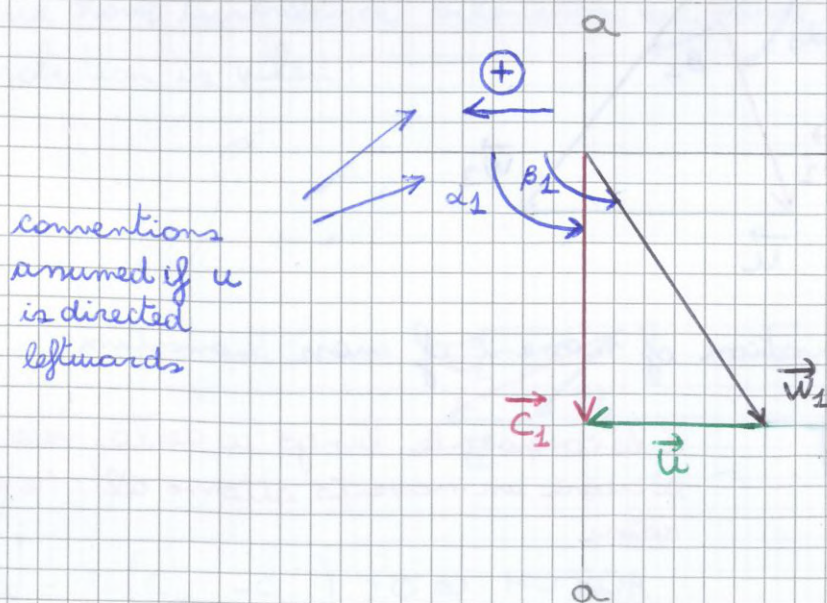 a
+
α₁
β₁
conventions
assumed if u
is directed
leftwards
W₁
C₁
u
a